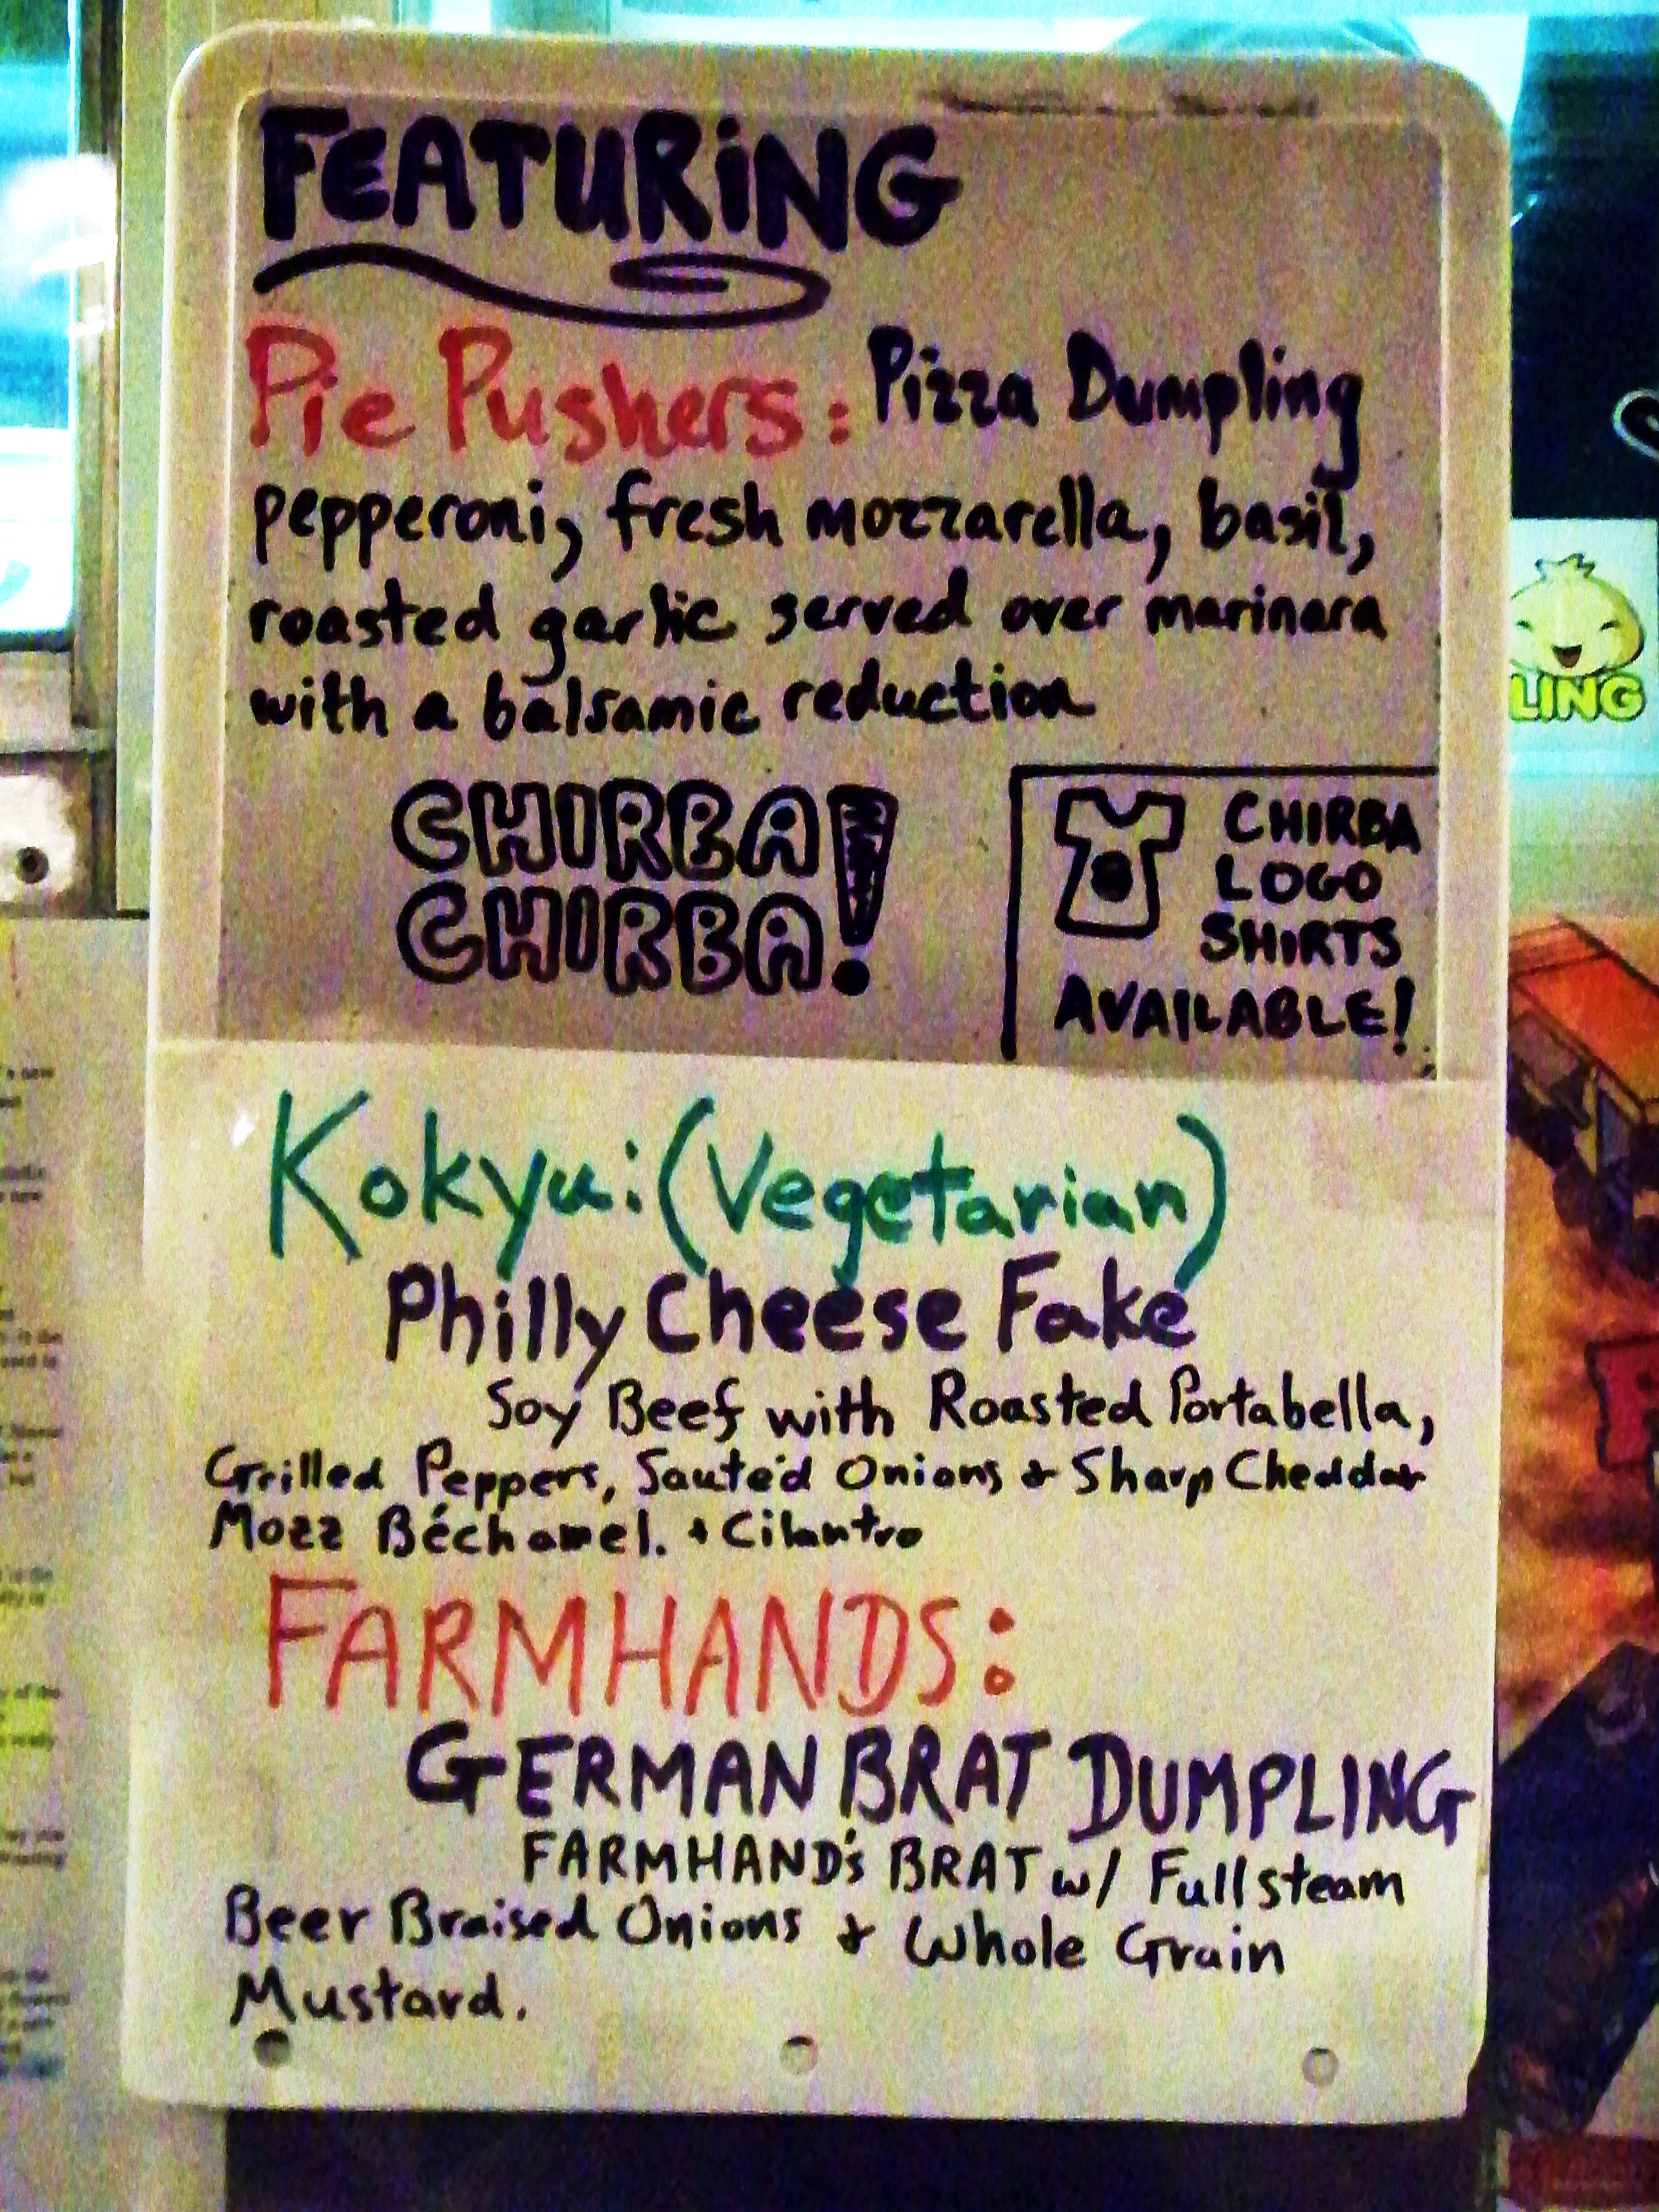 FEATURING
Pie Pushers: Pizza Dumpling
pepperoni, fresh mozzarella, basil,
roasted garlic served over marinara
with a balsamic reduction
CHIRBA
CHIRBA!
CHIRBA
LOGO
SHIRTS
AVAILABLE!
Kokyu: (Vegetarian)
Philly Cheese Fake
Soy Beef with Roasted Portabella,
Grilled Peppers, Saute'd Onions + Sharp Cheddar
Mozz Béchamel. + Cilantro
FARMHANDS:
GERMAN BRAT DUMPLING
FARMHAND's BRAT w/ Fullsteam
Beer Braised Onions + Whole Grain
Mustard.
LING